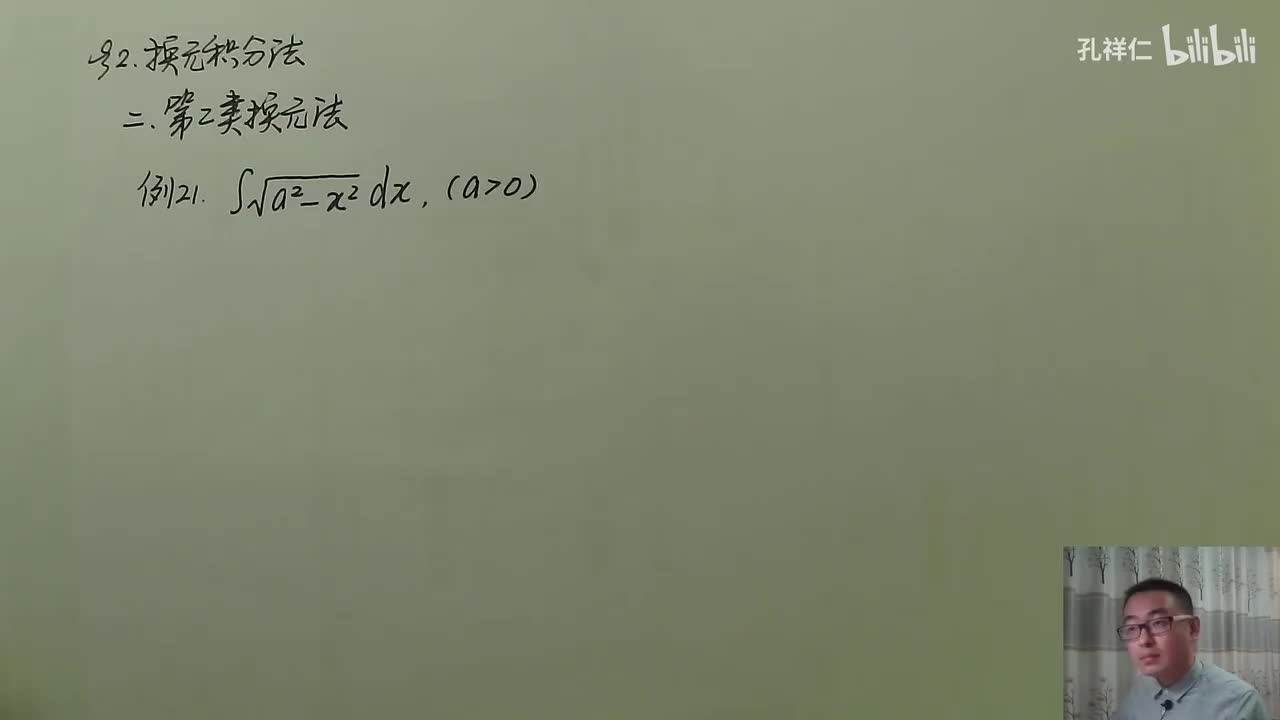 §2.换元积分法
二.第二类换元法
例21. ∫√(a²-x²) dx, (a>0)
孔祥仁 bilibili